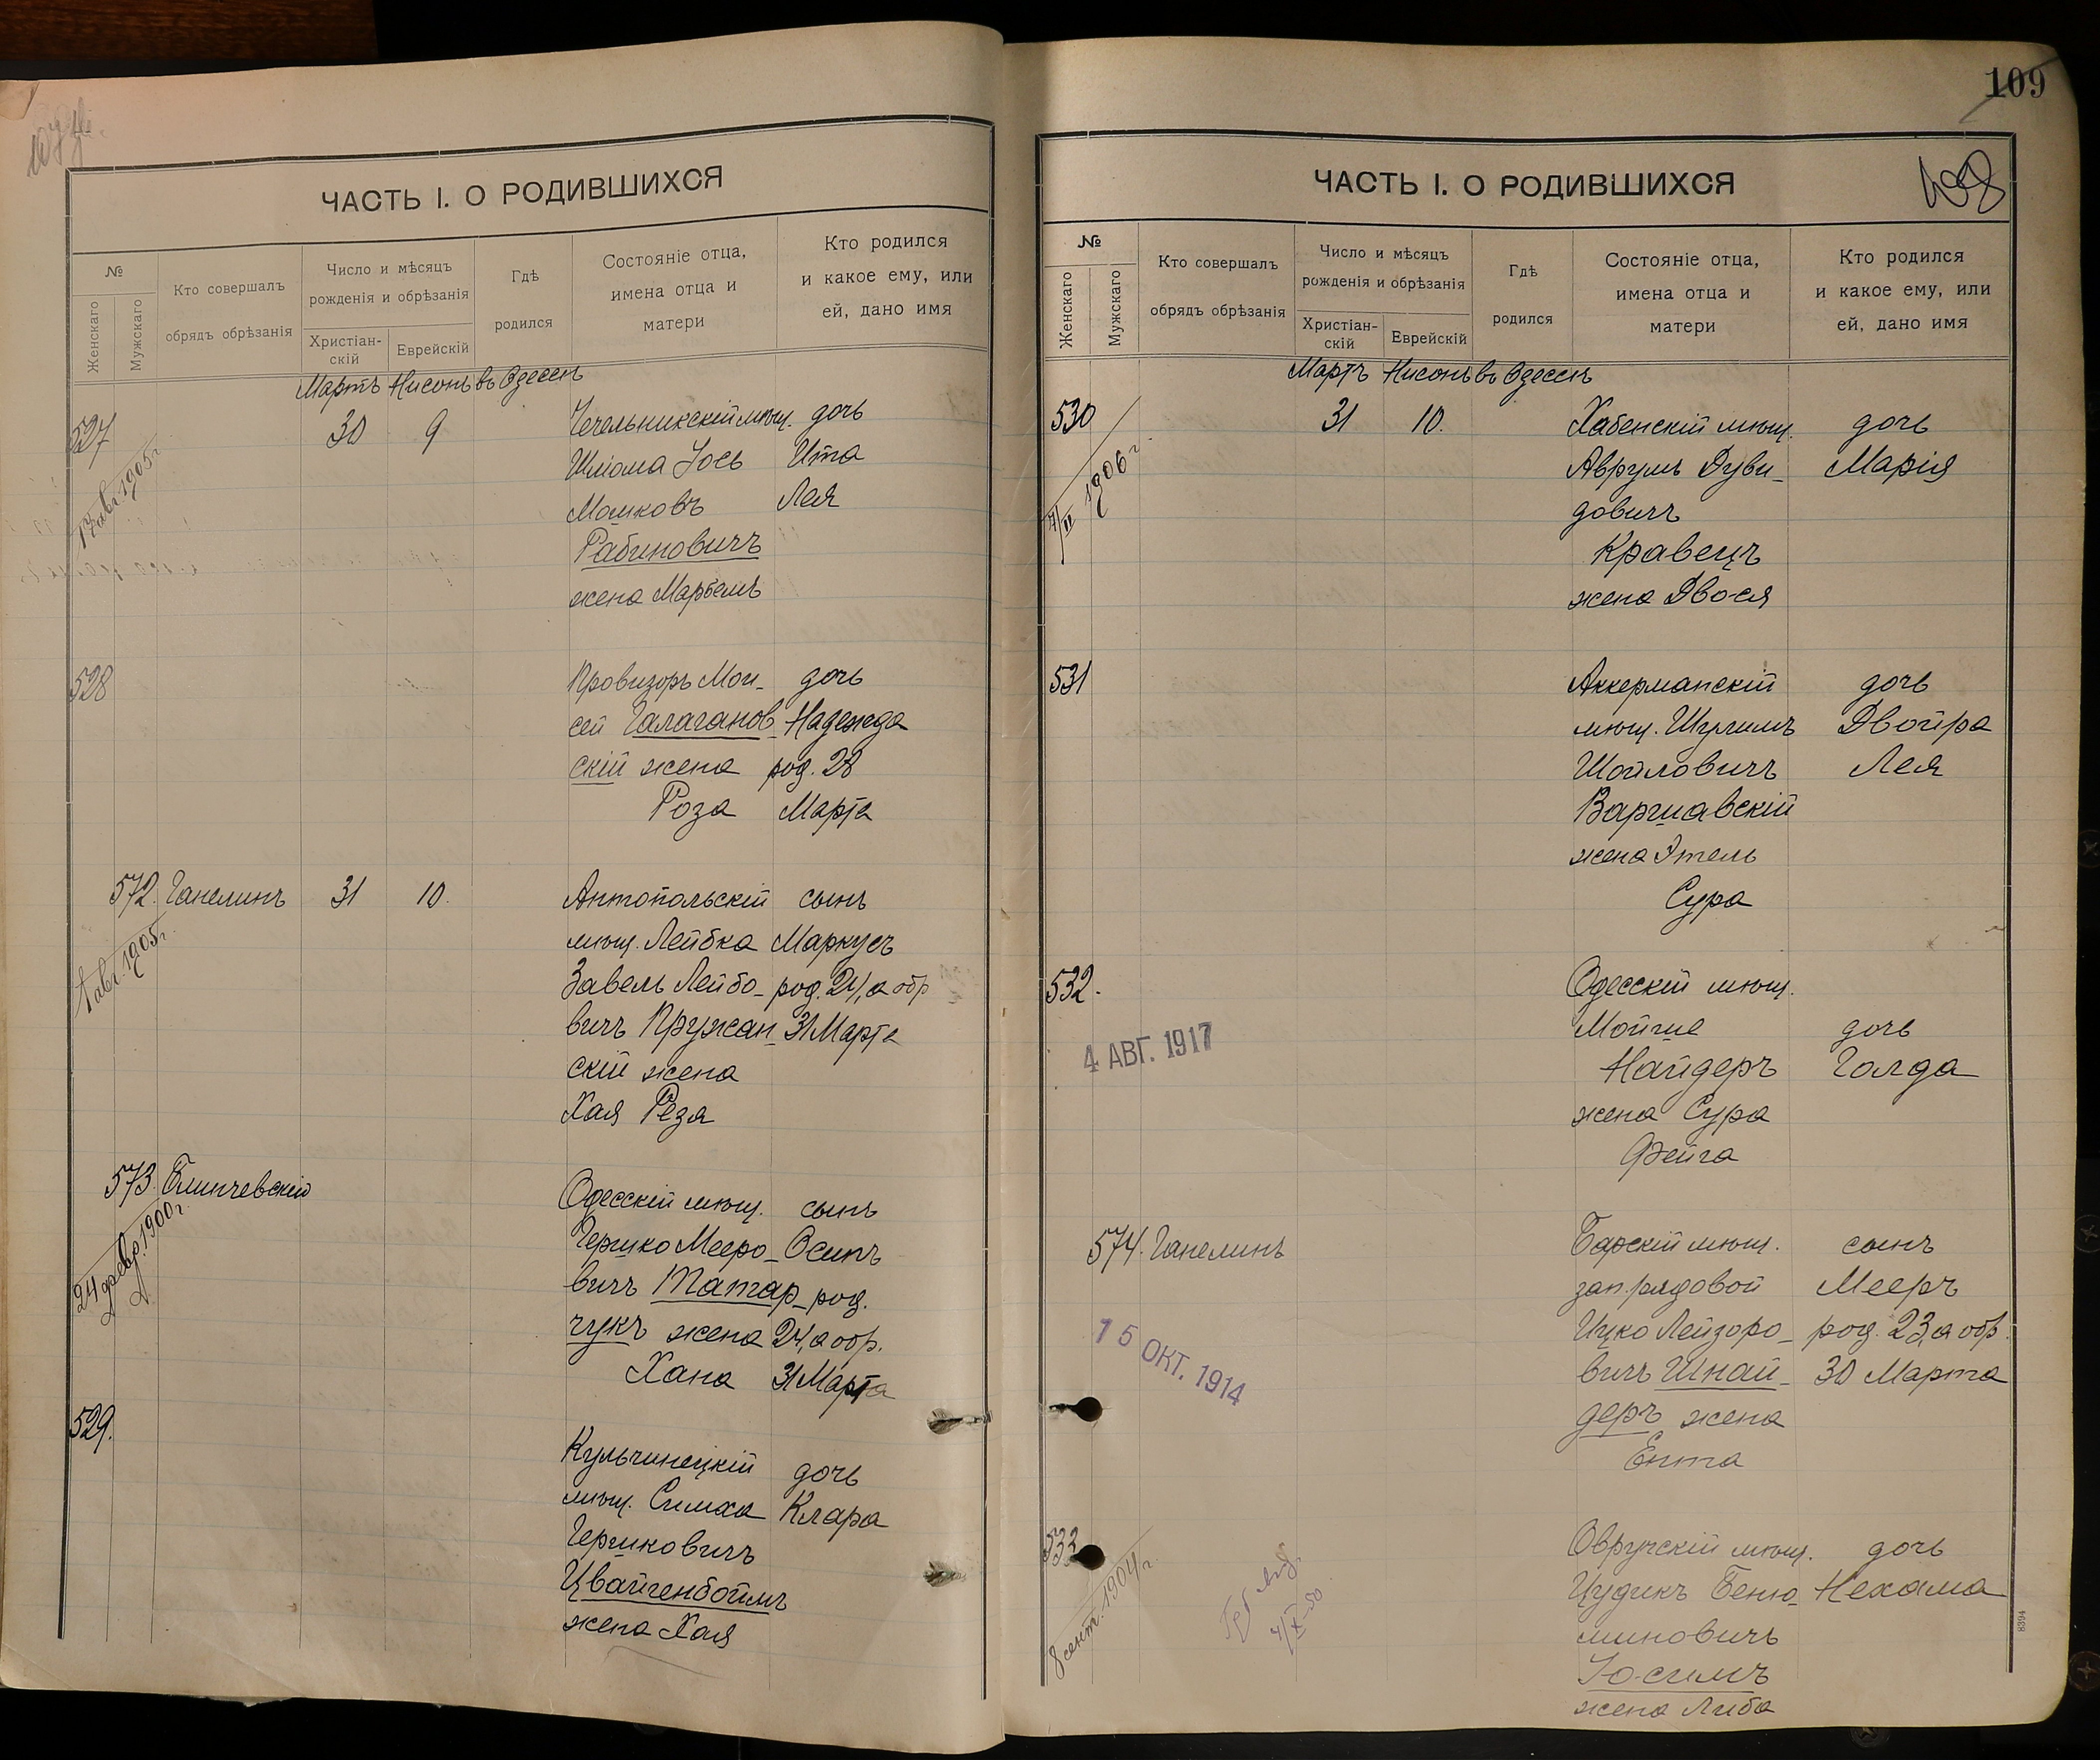 ЧАСТЬ I. О РОДИВШИХСЯ
№
Женскаго
Мужскаго
Кто совершалъ
обрядъ обрѣзанія
Число и мѣсяцъ
рожденія и обрѣзанія
Христіан-
скій
Еврейскій
Гдѣ
родился
Состояніе отца,
имена отца и
матери
Кто родился
и какое ему, или
ей, дано имя
Мартъ Нисонъ въ Одессѣ
527 30 9 Чечельникскій мѣщ. дочь
Шліома Іось Ита
Мошковъ Лея
Рабиновичъ
жена Марьемъ
17 авг. 1905 г.
528 Провизоръ Мои- дочь
сей Галаганов- Надежда
скій жена род. 28
Роза Марта
572. Ганелинъ 31 10. Антопольскій сынъ
мѣщ. Лейбка Маркусъ
Завель Лейбо- род. 24, а обр
вичъ Пружан- 31 Марта
скій жена
Хая Реза
1 авг. 1905 г.
573 Блинчевскій Одесскій мѣщ. сынъ
Гершко Мееро- Осипъ
вичъ Татар- род.
чукъ жена 24, а обр.
Хана 31 Марта
24 февр. 1900 г.
529. Кульчинецкій дочь
мѣщ. Симха Клара
Гершковичъ
Цвайгенбоймъ
жена Хая
109
108
ЧАСТЬ I. О РОДИВШИХСЯ
№
Женскаго
Мужскаго
Кто совершалъ
обрядъ обрѣзанія
Число и мѣсяцъ
рожденія и обрѣзанія
Христіан-
скій
Еврейскій
Гдѣ
родился
Состояніе отца,
имена отца и
матери
Кто родился
и какое ему, или
ей, дано имя
Мартъ Нисонъ въ Одессѣ
530 31 10. Хабенскій мѣщ. дочь
Аврумъ Дуви- Марія
довичъ
Кравецъ
жена Двося
7/II 1906 г.
531 Аккерманскій дочь
мѣщ. Шулимъ Двойра
Шойловичъ Лея
Варшавскій
жена Этель
Сура
532. Одесскій мѣщ.
Мойше дочь
Найдеръ Голда
жена Сура
Фейга
4 АВГ. 1917
574. Ганелинъ Барскій мѣщ. сынъ
зап. рядовой Мееръ
Ицко Лейзоро- род. 23, а обр.
вичъ Шнай- 30 Марта
деръ жена
Ента
15 ОКТ. 1914
533 Овручскій мѣщ. дочь
Цудикъ Беню- Нехама
миновичъ
Іо-симъ
жена Либа
8 сент. 1904 г.
4/X-50
8394